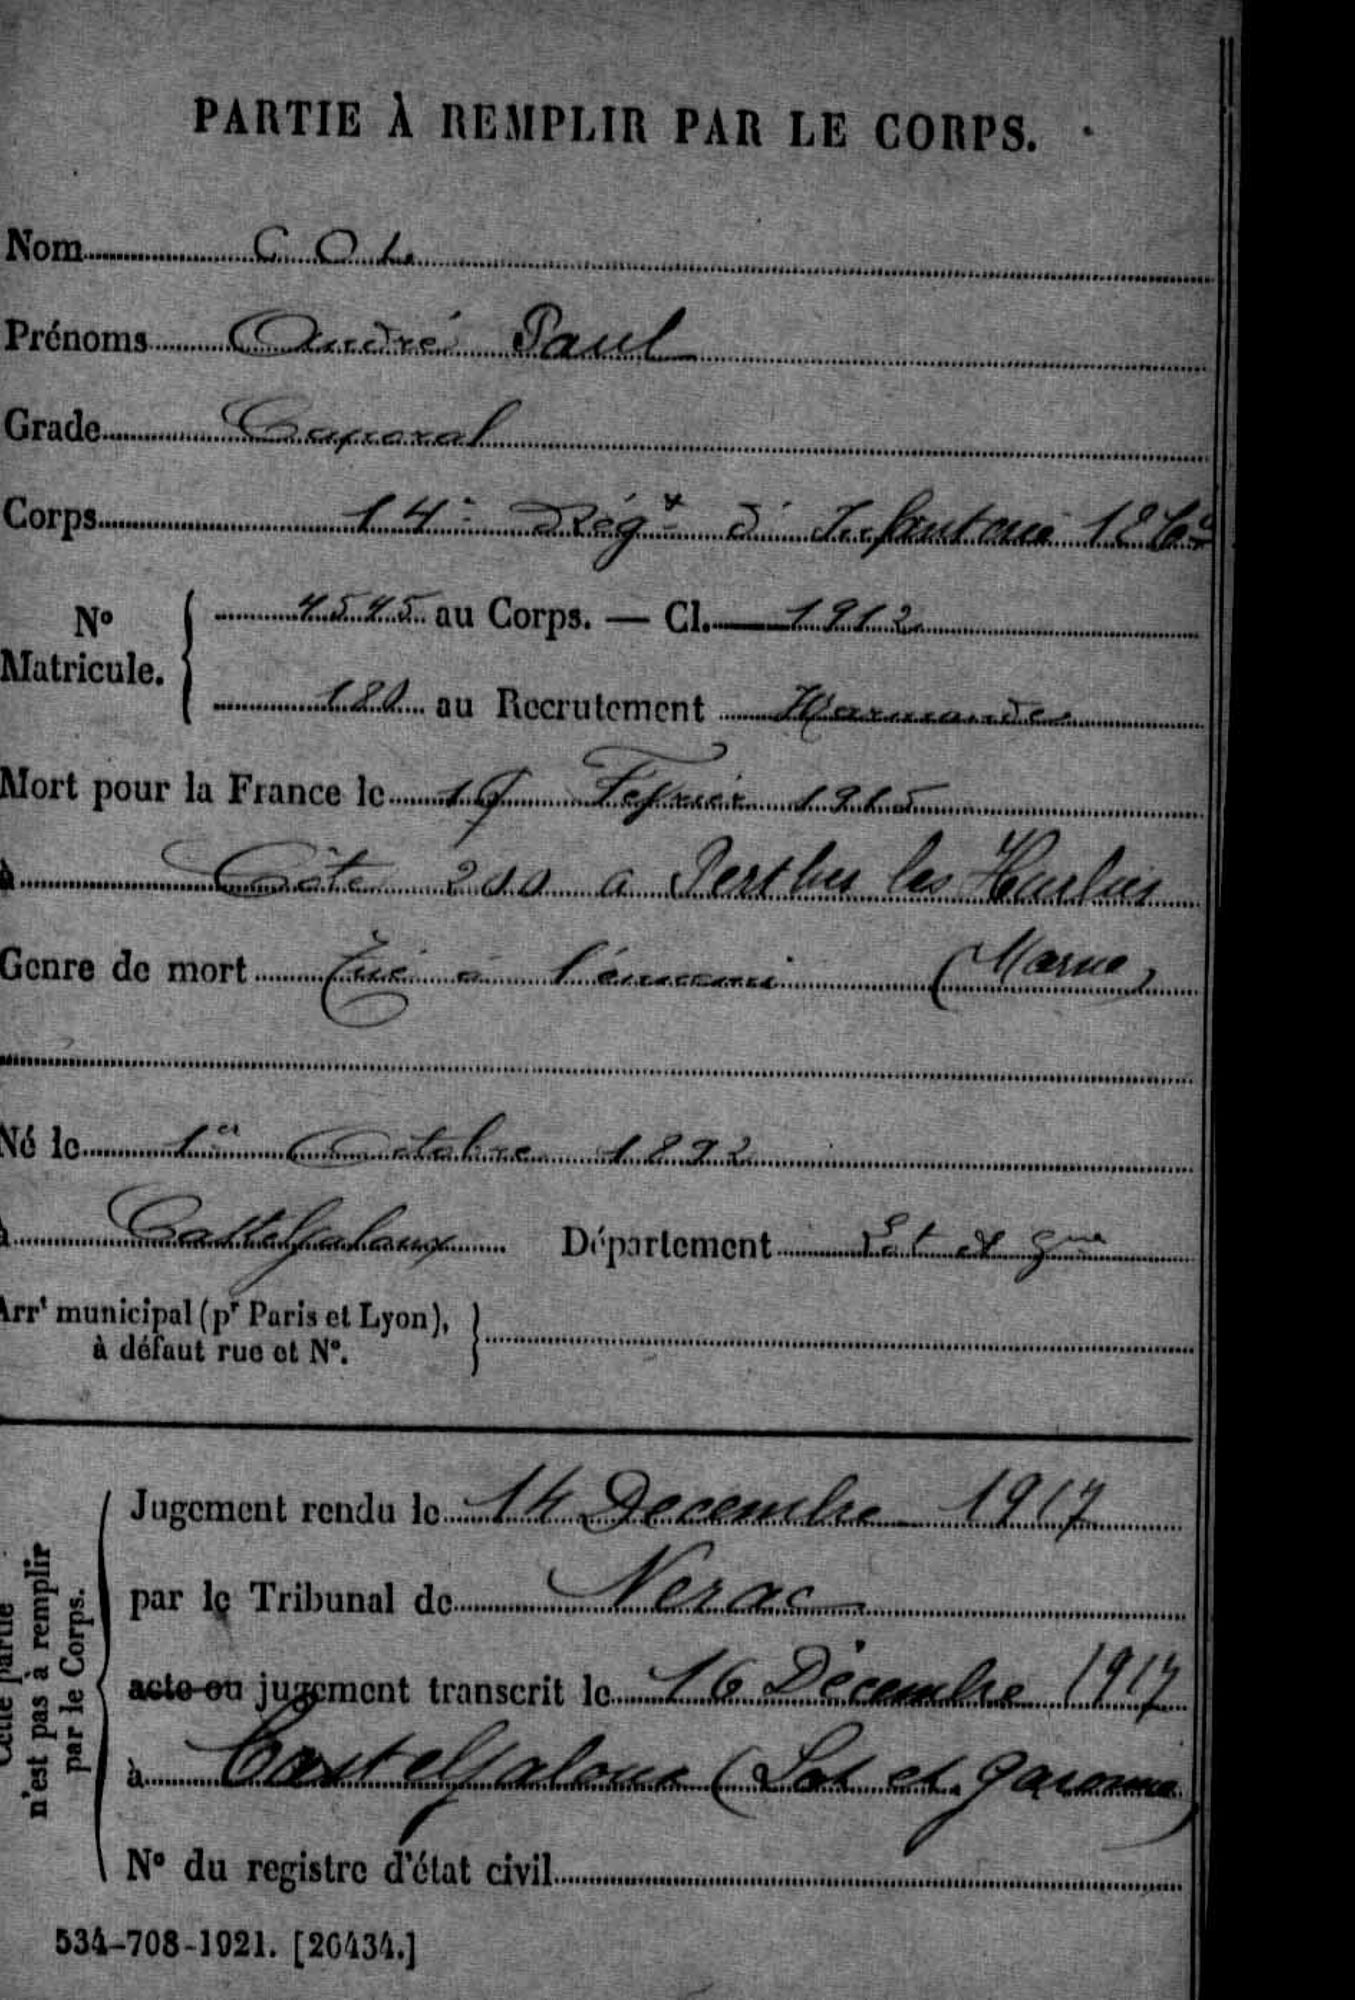 PARTIE À REMPLIR PAR LE CORPS.
Nom COL
Prénoms André Paul
Grade Caporal
Corps 14e Régt d'Infanterie 12e Cie
No Matricule. 4545 au Corps. — Cl. 1912
180 au Recrutement Marmande
Mort pour la France le 17 Février 1915
à Côte 200 a Perthes les Hurlus
Genre de mort Tué à l'ennemi (Marne)
Né le 1er Octobre 1892
à Casteljaloux Département Lot et Gne
Arrt municipal (pr Paris et Lyon),
à défaut rue et No.
Cette partie
n'est pas à remplir
par le Corps.
Jugement rendu le 14 Decembre 1917
par le Tribunal de Nerac
acte ou jugement transcrit le 16 Décembre 1917
à Casteljaloux (Lot et Garonne)
No du registre d'état civil
534-708-1921. [26434.]